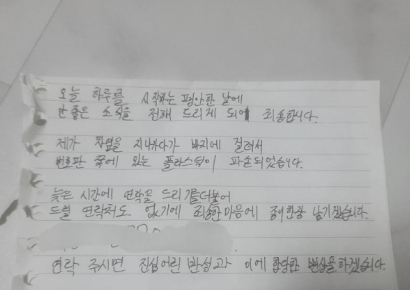 오늘 하루를 시작하는 평안한 날에
안 좋은 소식을 전해 드리게 되어 죄송합니다.
제가 차옆을 지나가다가 바지에 걸려서
번호판 옆에 있는 플라스틱이 파손되었습니다.
늦은 시간에 연락을 드리기를 더불어
드릴 연락처도 없기에 죄송한 마음에 남기겠습니다.
연락 주시면 진심어린 반성과 이에 합당한 변상을하겠습니다.